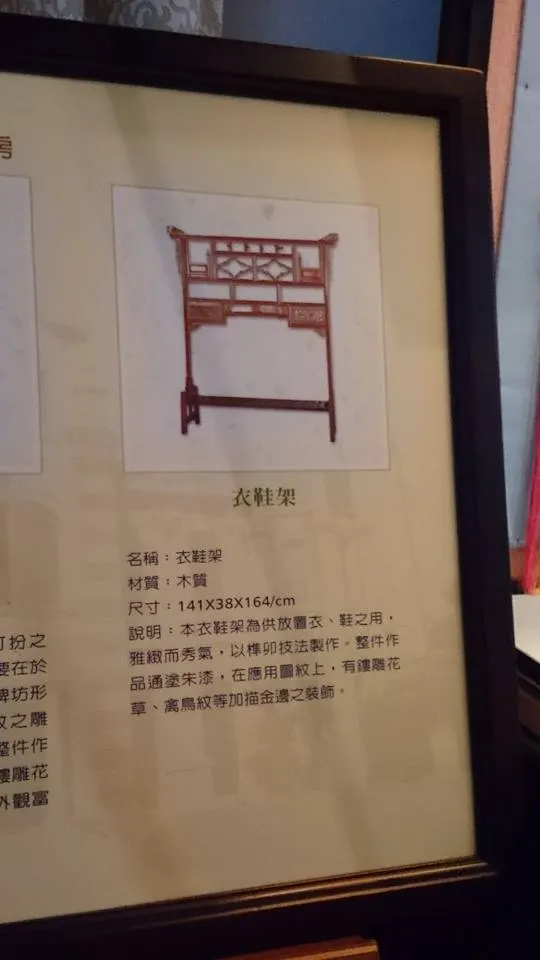 房
衣鞋架
名稱：衣鞋架
材質：木質
尺寸：141X38X164/cm
說明：本衣鞋架為供放置衣、鞋之用，
雅緻而秀氣，以榫卯技法製作。整件作
品通塗朱漆，在應用圖紋上，有鏤雕花
草、禽鳥紋等加描金邊之裝飾。
扮之
要在於
牌坊形
紋之雕
整件作
鏤雕花
外觀富